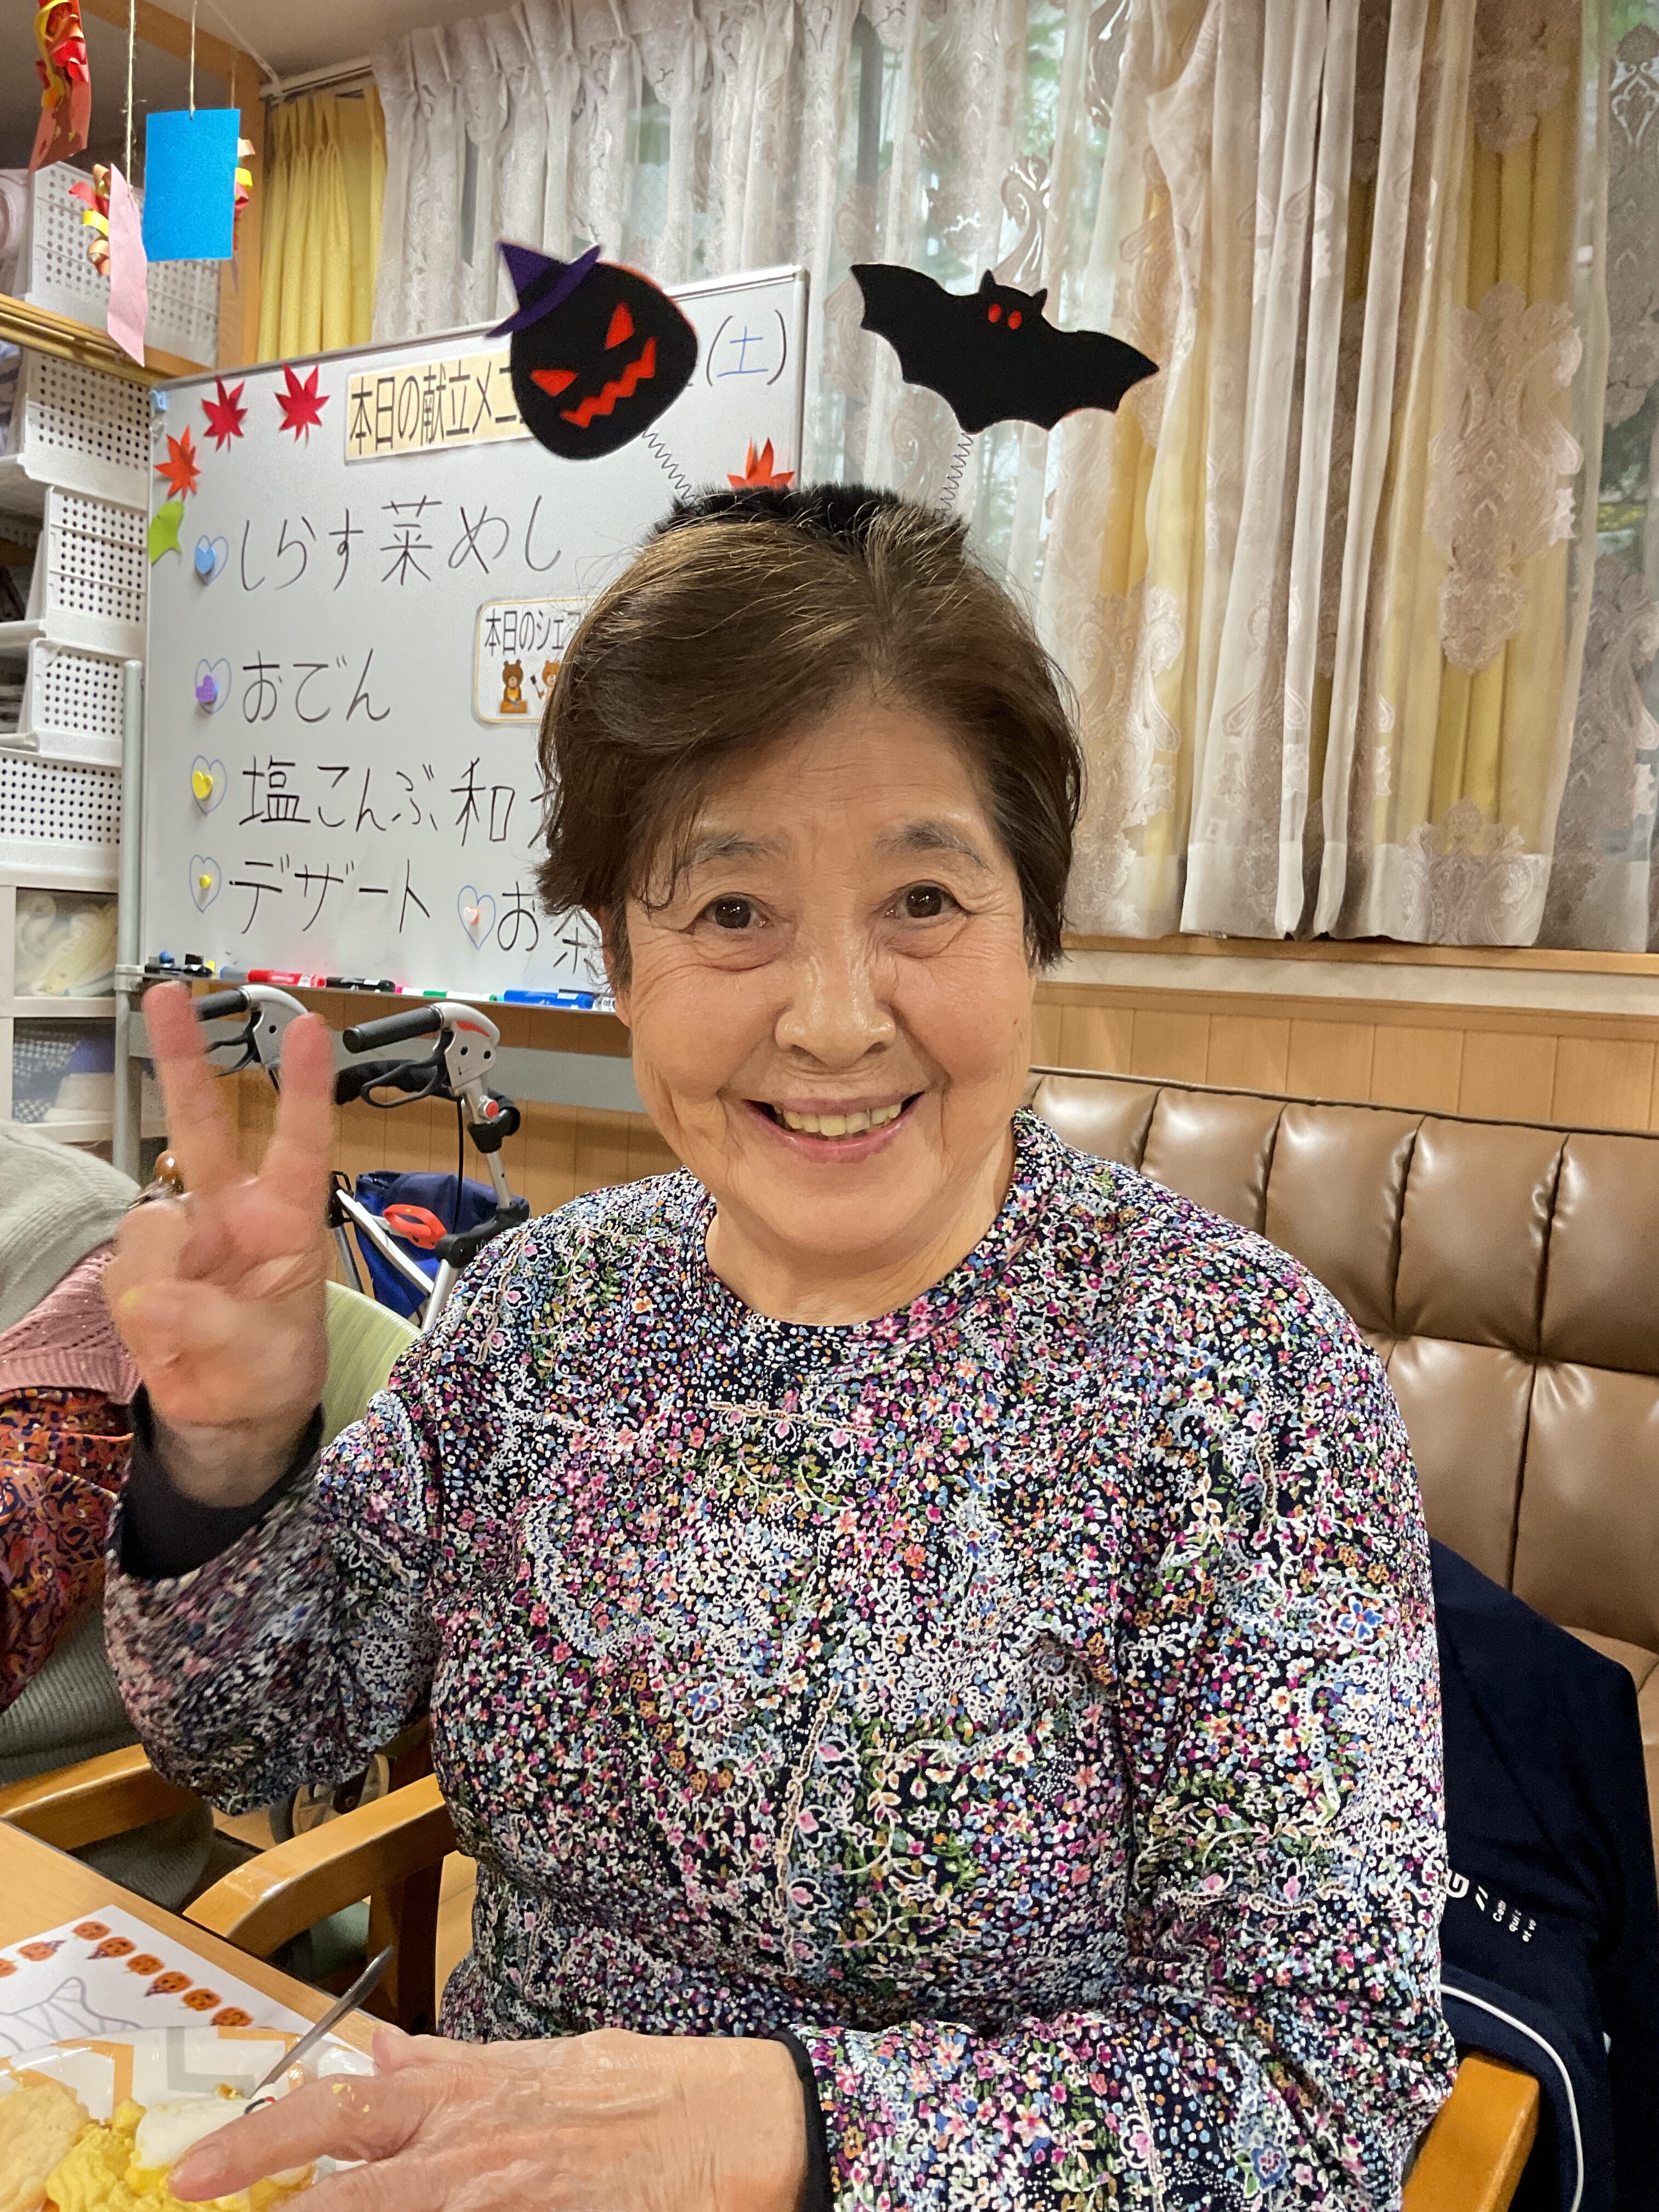 本日の献立メニ
(土)
しらす菜めし
本日のシェフ
おでん
塩こんぶ和え
デザート
お茶